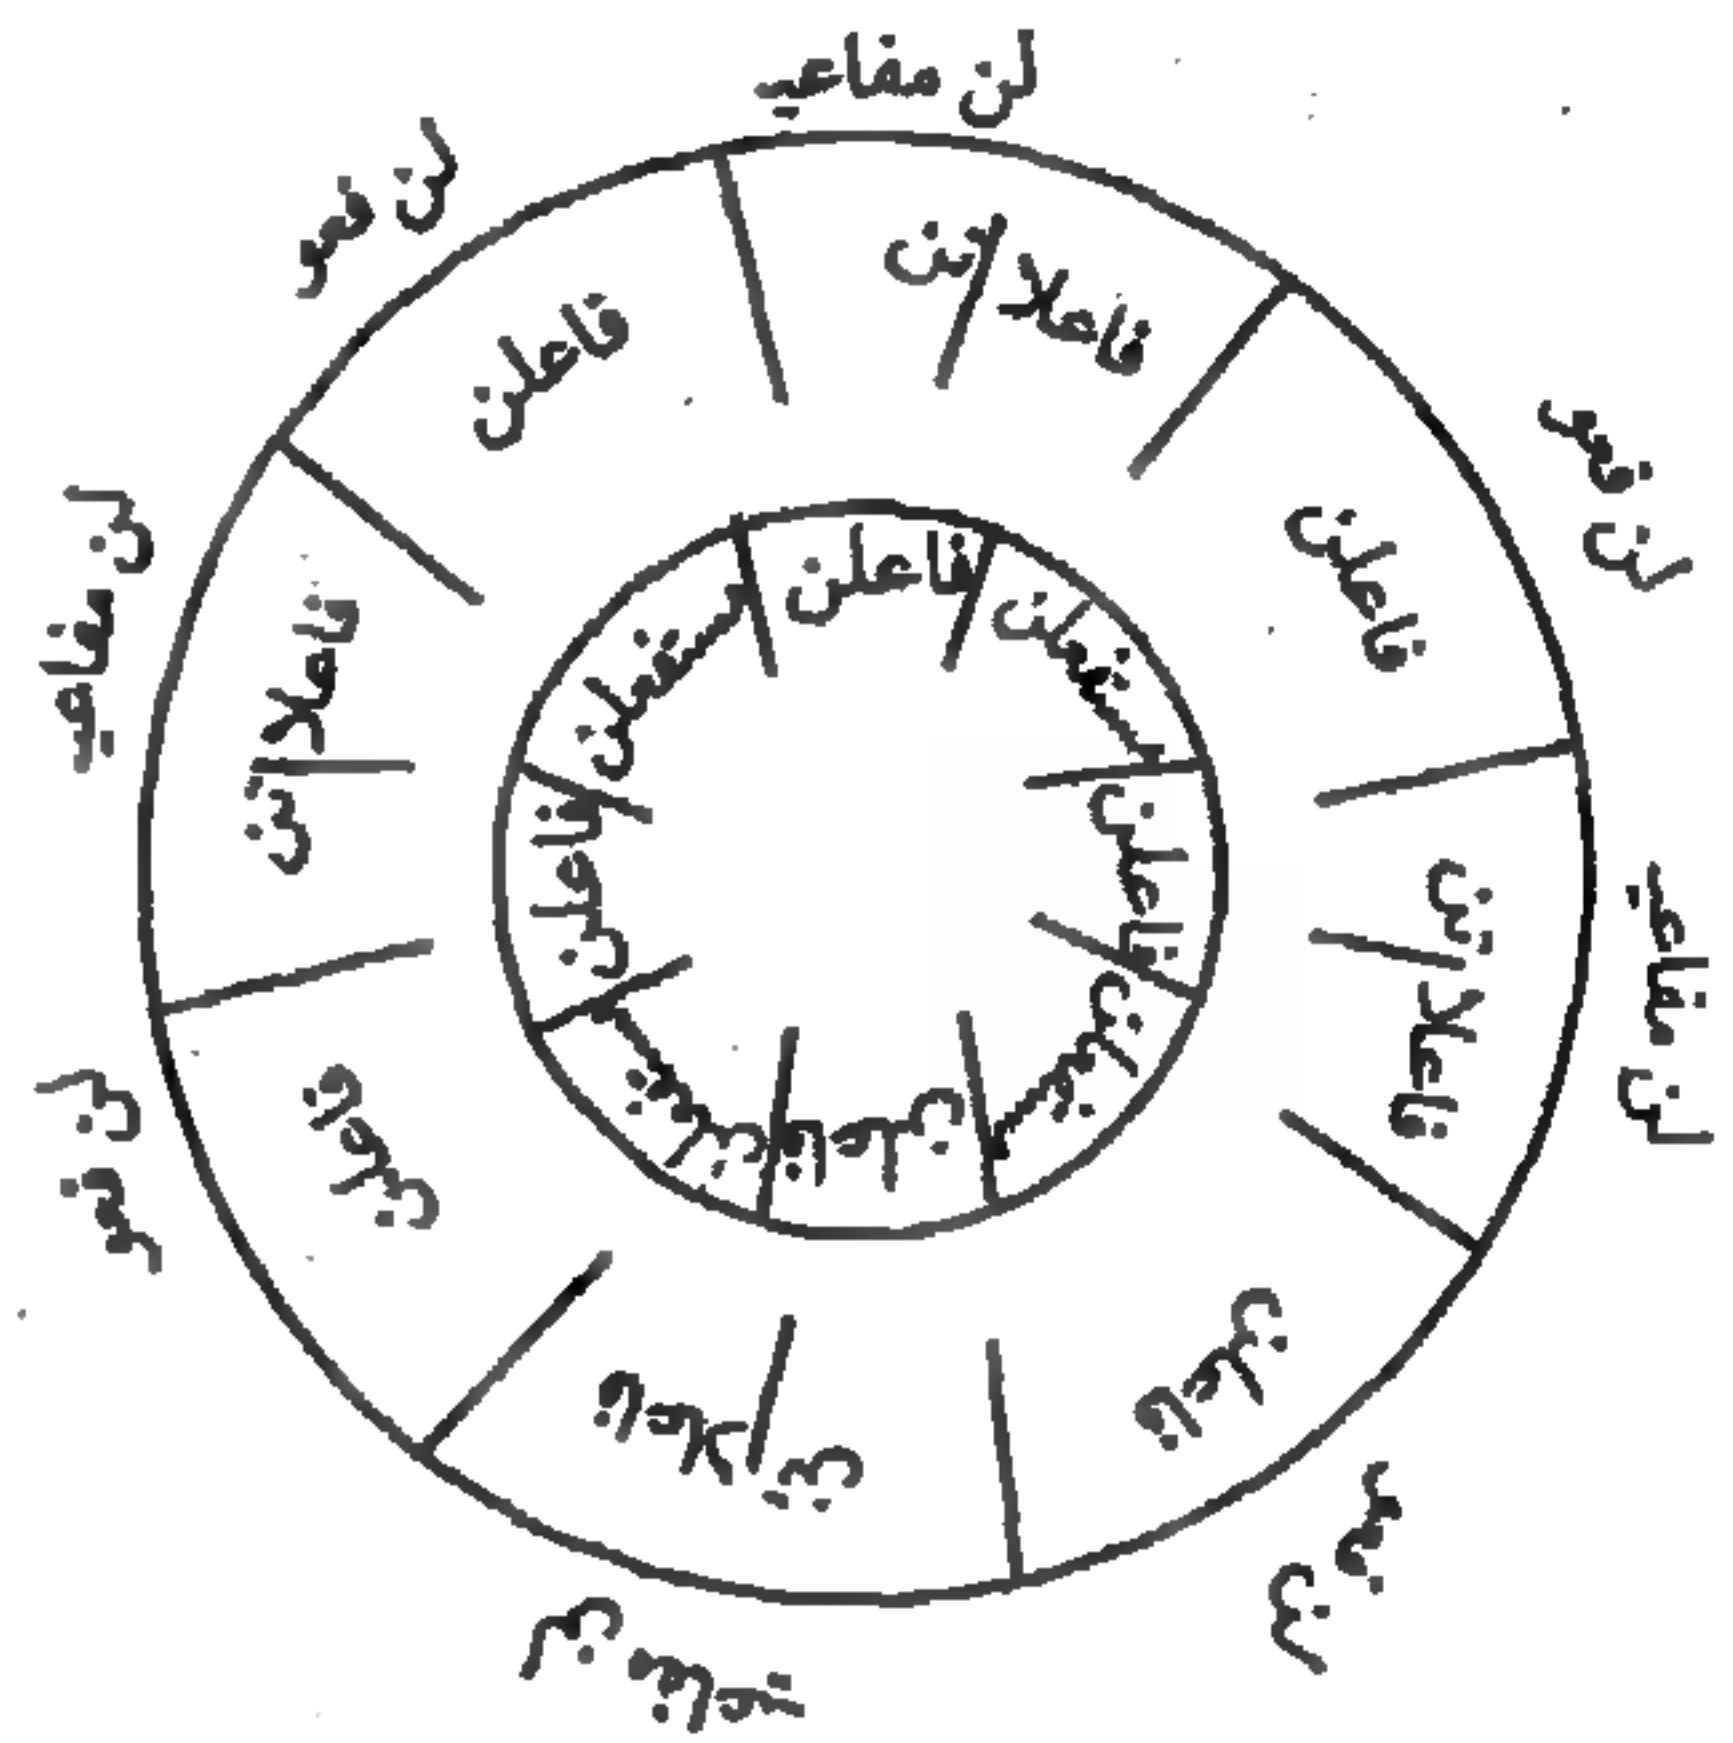 لن مفاعيـ
لن فعو
لن مفاعيـ
لن فعو
لن مفاعيـ
لن فعو
لن مفاعيـ
لن فعو
فاعلا/تن
فاعلن
فاعلا/تن
فاعلن
فاعلا/تن
فاعلن
فاعلا/تن
فاعلن
فاعلن
مستفعلن
فاعلن
مستفعلن
فاعلن
مستفعلن
فاعلن
مستفعلن